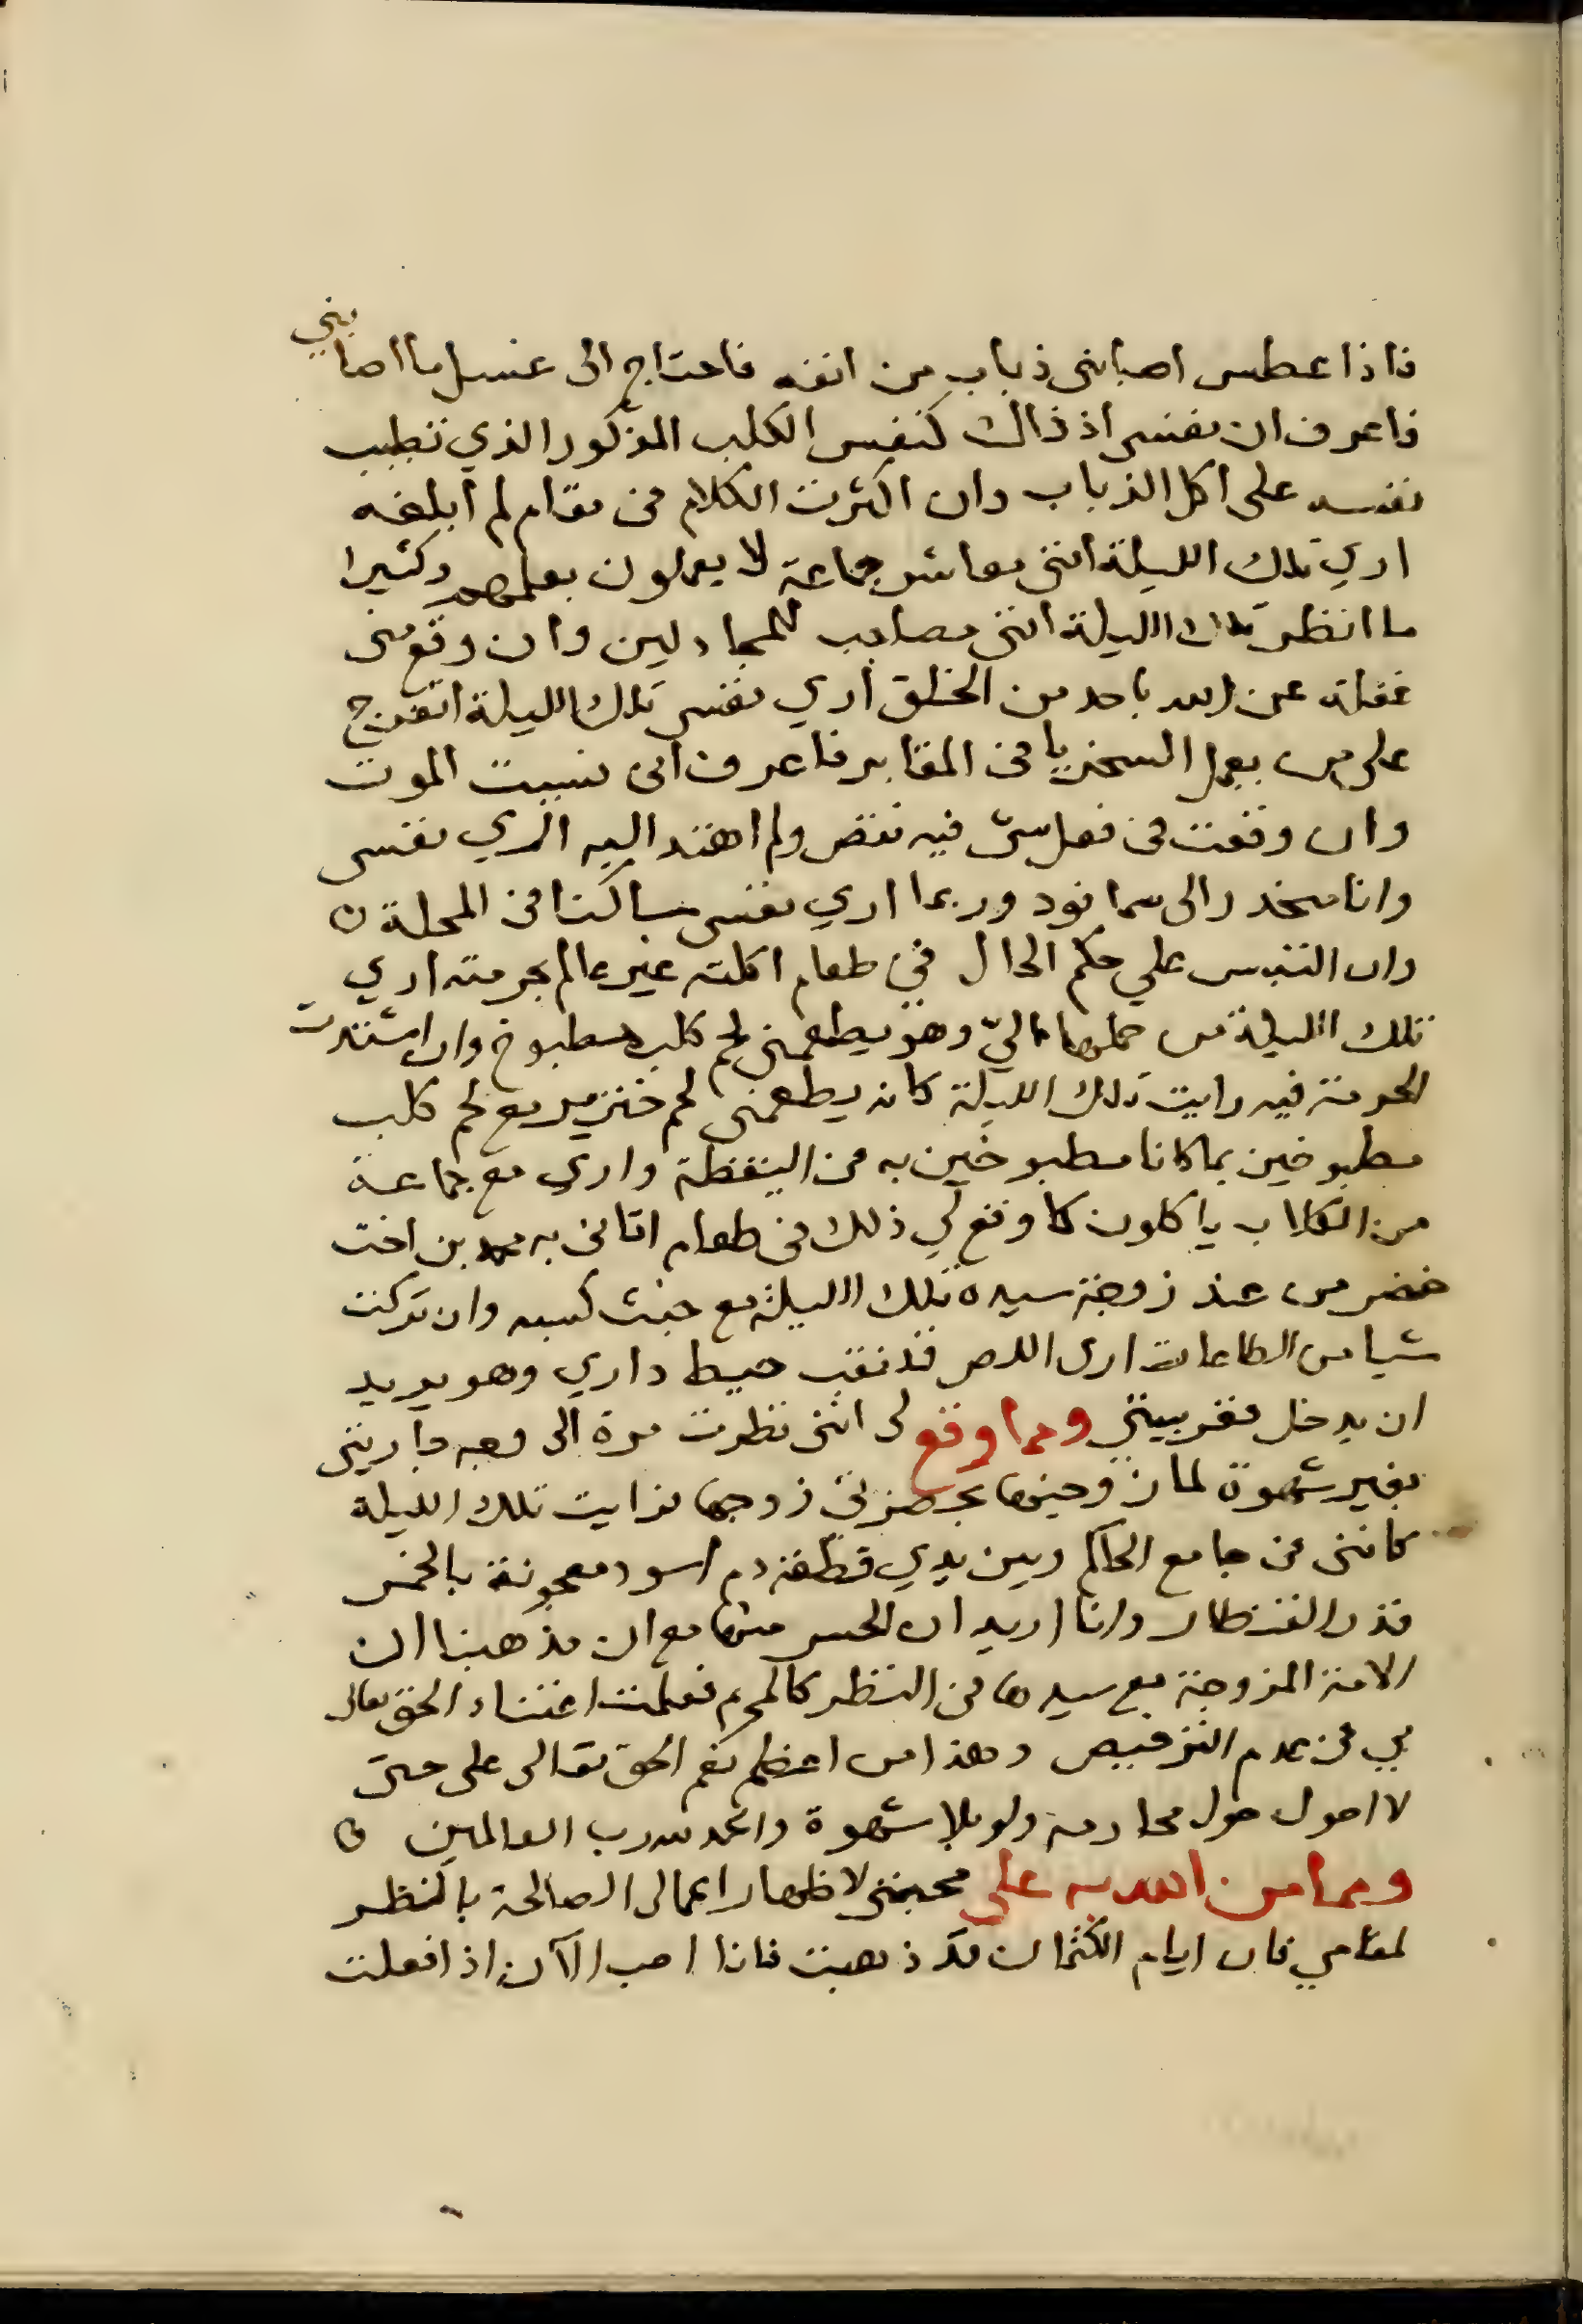 فاذا عطس اصابنى ذباب من انفه فاحتاج الى غسل ما اصابني
فاعرف ان نفسى اذ ذاك كنفس الكلب المذكور الذي تطيب
نفسه على اكل الذباب وان اكثرت الكلام فى مقام لم ابلغه
اري تلك الليلة اننى معاشر جماعة لا يعملون بعلمهم وكثيرا
ما انظر تلك الليلة اننى مصاحب للمجادلين وان وقع منى
غفلة عن الله باحد من الخلق اري نفسى تلك الليلة اتفرج
على من يعمل السخريا فى المقابر فاعرف انى نسيت الموت
وان وقعت فى فعل شئ فيه نقص ولم اهتد اليه اري نفسى
وانا منحدر الى سمانود وربما اري نفسى ساكنا فى المحلة ٥
وان التبس علي حكم الحال في طعام اكلته غير عالم بحرمته اري
تلك الليلة من حملها اليّ وهو يطعمنى لحم كلب مطبوخ وان اشتدت
الحرمة فيه رايت تلك الليلة كانه يطعمنى لحم خنزير مع لحم كلب
مطبوخين بما كانا مطبوخين به فى اليقظة واري مع جماعة
من الكلاب ياكلون كما وقع لي ذلك فى طعام اتانى به محمد بن اخت
خضر من عند زوجة سيده تلك الليلة مع خبث كسبه وان تركت
شيا من الطاعات ارى اللص قد نقب حيط داري وهو يريد
ان يدخل فقربيتى ومما وقع لى اننى نظرت مرة الى وجه جاريتى
بغير شهوة لما زوجتها بحضرتى زوجها فرايت تلك الليلة
كاننى فى جامع الحاكم وبين يدي قطعة دم اسود معجونة بالخمر
قدر القنطار وانا اريد ان الحس منها مع ان مذهبنا ان
الامة المزوجة مع سيدها فى النظر كالمحرم فعلمت اعتناء الحق تعالى
بي فى عدم الترخيص وهذا من اعظم نعم الحق تعالى على حتى
لا احول حول محارمه ولو بلا شهوة والحمد لله رب العالمين ٥
ومما من الله به على محبتى لاظهار اعمالى الصالحة بالنظر
لمقامي فان ايام الكتمان قد ذهبت فانا احب الآن اذا فعلت